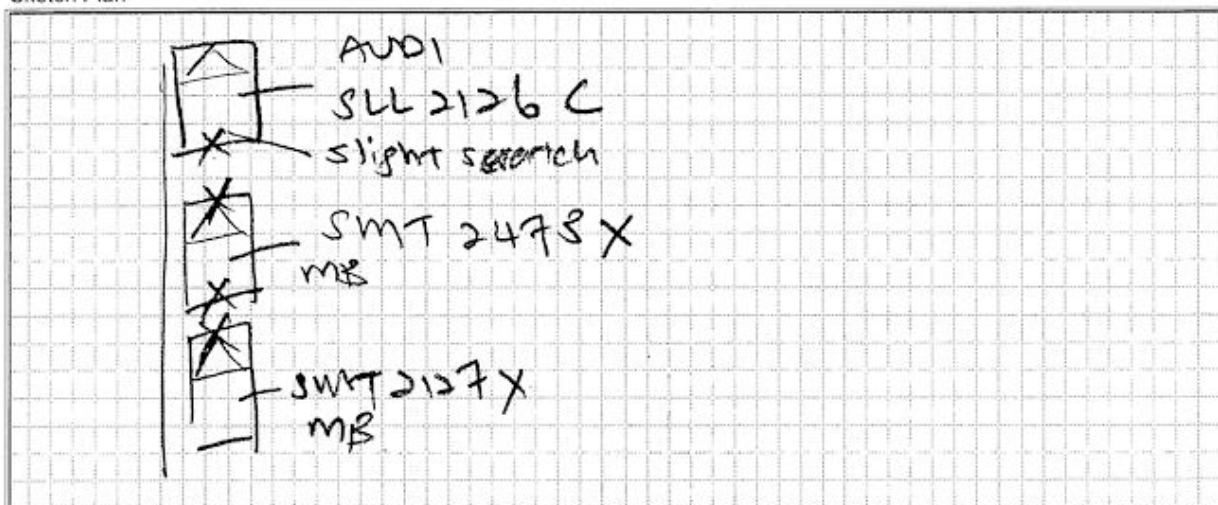 Sketch Plan
AUDI
SLL 2126 C
slight scratch
SMT 2473 X
MB
SMT 2127 X
MB